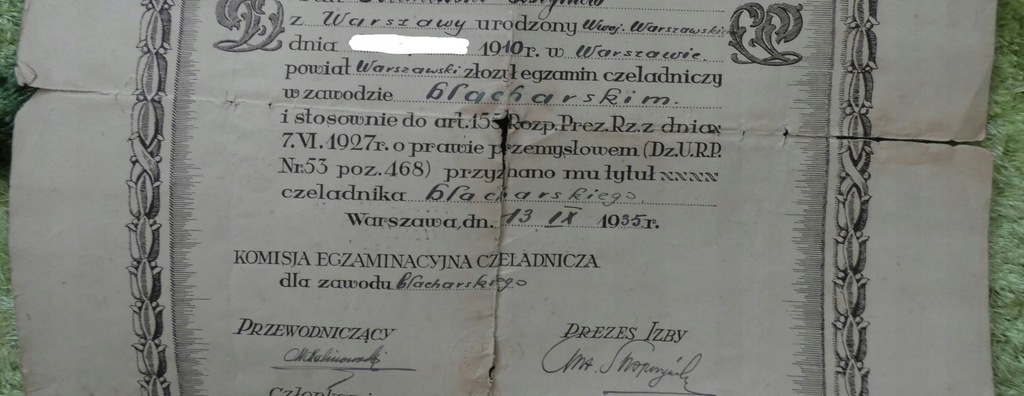 z Warszawy urodzony Woj. Warszawskie
dnia 1910r. w Warszawie.
powiat Warszawski złożył egzamin czeladniczy
w zawodzie blacharskim.
i stosownie do art.155 Rozp. Prez. Rz. z dnia
7.VI.1927r. o prawie przemysłowem (Dz.U.R.P.
Nr.53 poz.468) przyznano mu tytuł xxxx
czeladnika blacharskiego.
Warszawa, dn. 13 IX 1935r.
KOMISJA EGZAMINACYJNA CZELADNICZA
dla zawodu blacharskiego
PRZEWODNICZĄCY PREZES IZBY
MKalinowski